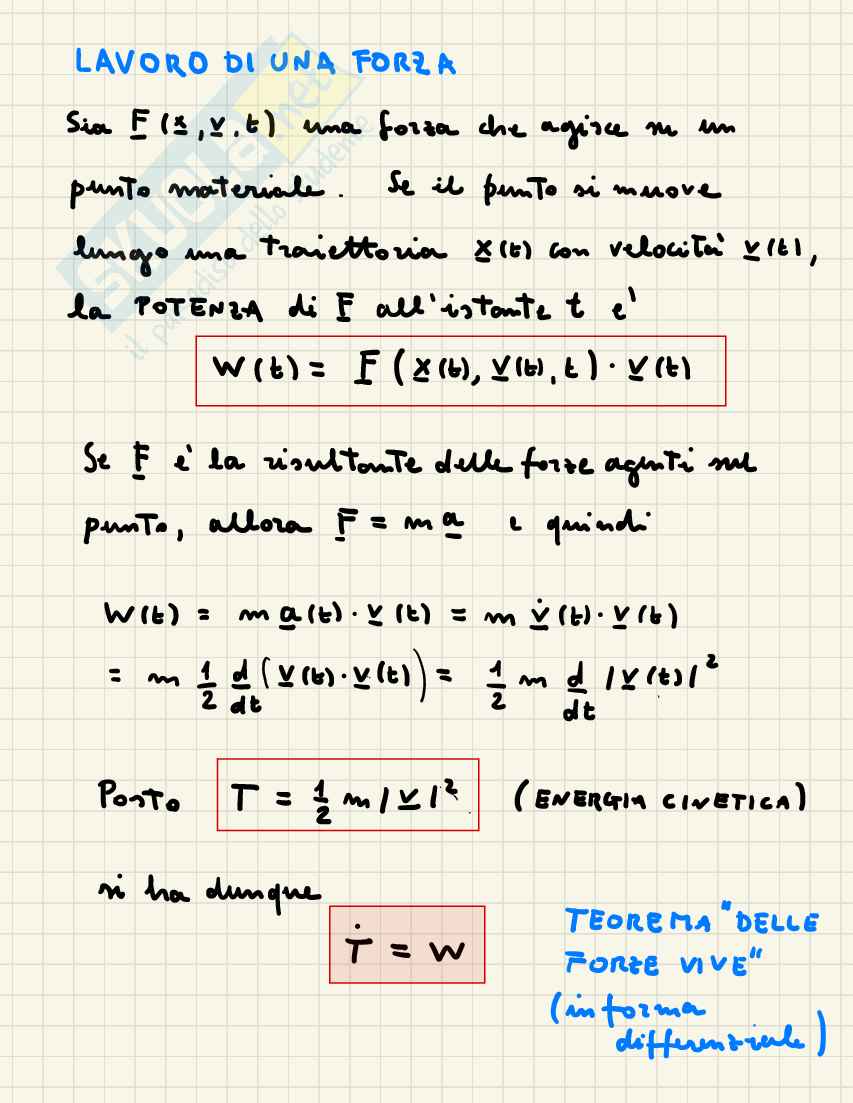 LAVORO DI UNA FORZA
Sia F (x, v, t) una forza che agisce su un
punto materiale. Se il punto si muove
lungo una traiettoria x(t) con velocità v(t),
la POTENZA di F all'istante t e'
W(t) = F(x(t), v(t), t) · v(t)
Se F e' la risultante delle forze agenti sul
punto, allora F = m a e quindi
W(t) = m a(t) · v(t) = m v̇(t) · v(t)
= m 1/2 d/dt (v(t) · v(t)) = 1/2 m d/dt |v(t)|²
Posto T = 1/2 m |v|² (ENERGIA CINETICA)
si ha dunque
Ṫ = W
TEOREMA "DELLE
FORZE VIVE"
(in forma
differenziale)
SKUOLA.net
il paradiso dello studente